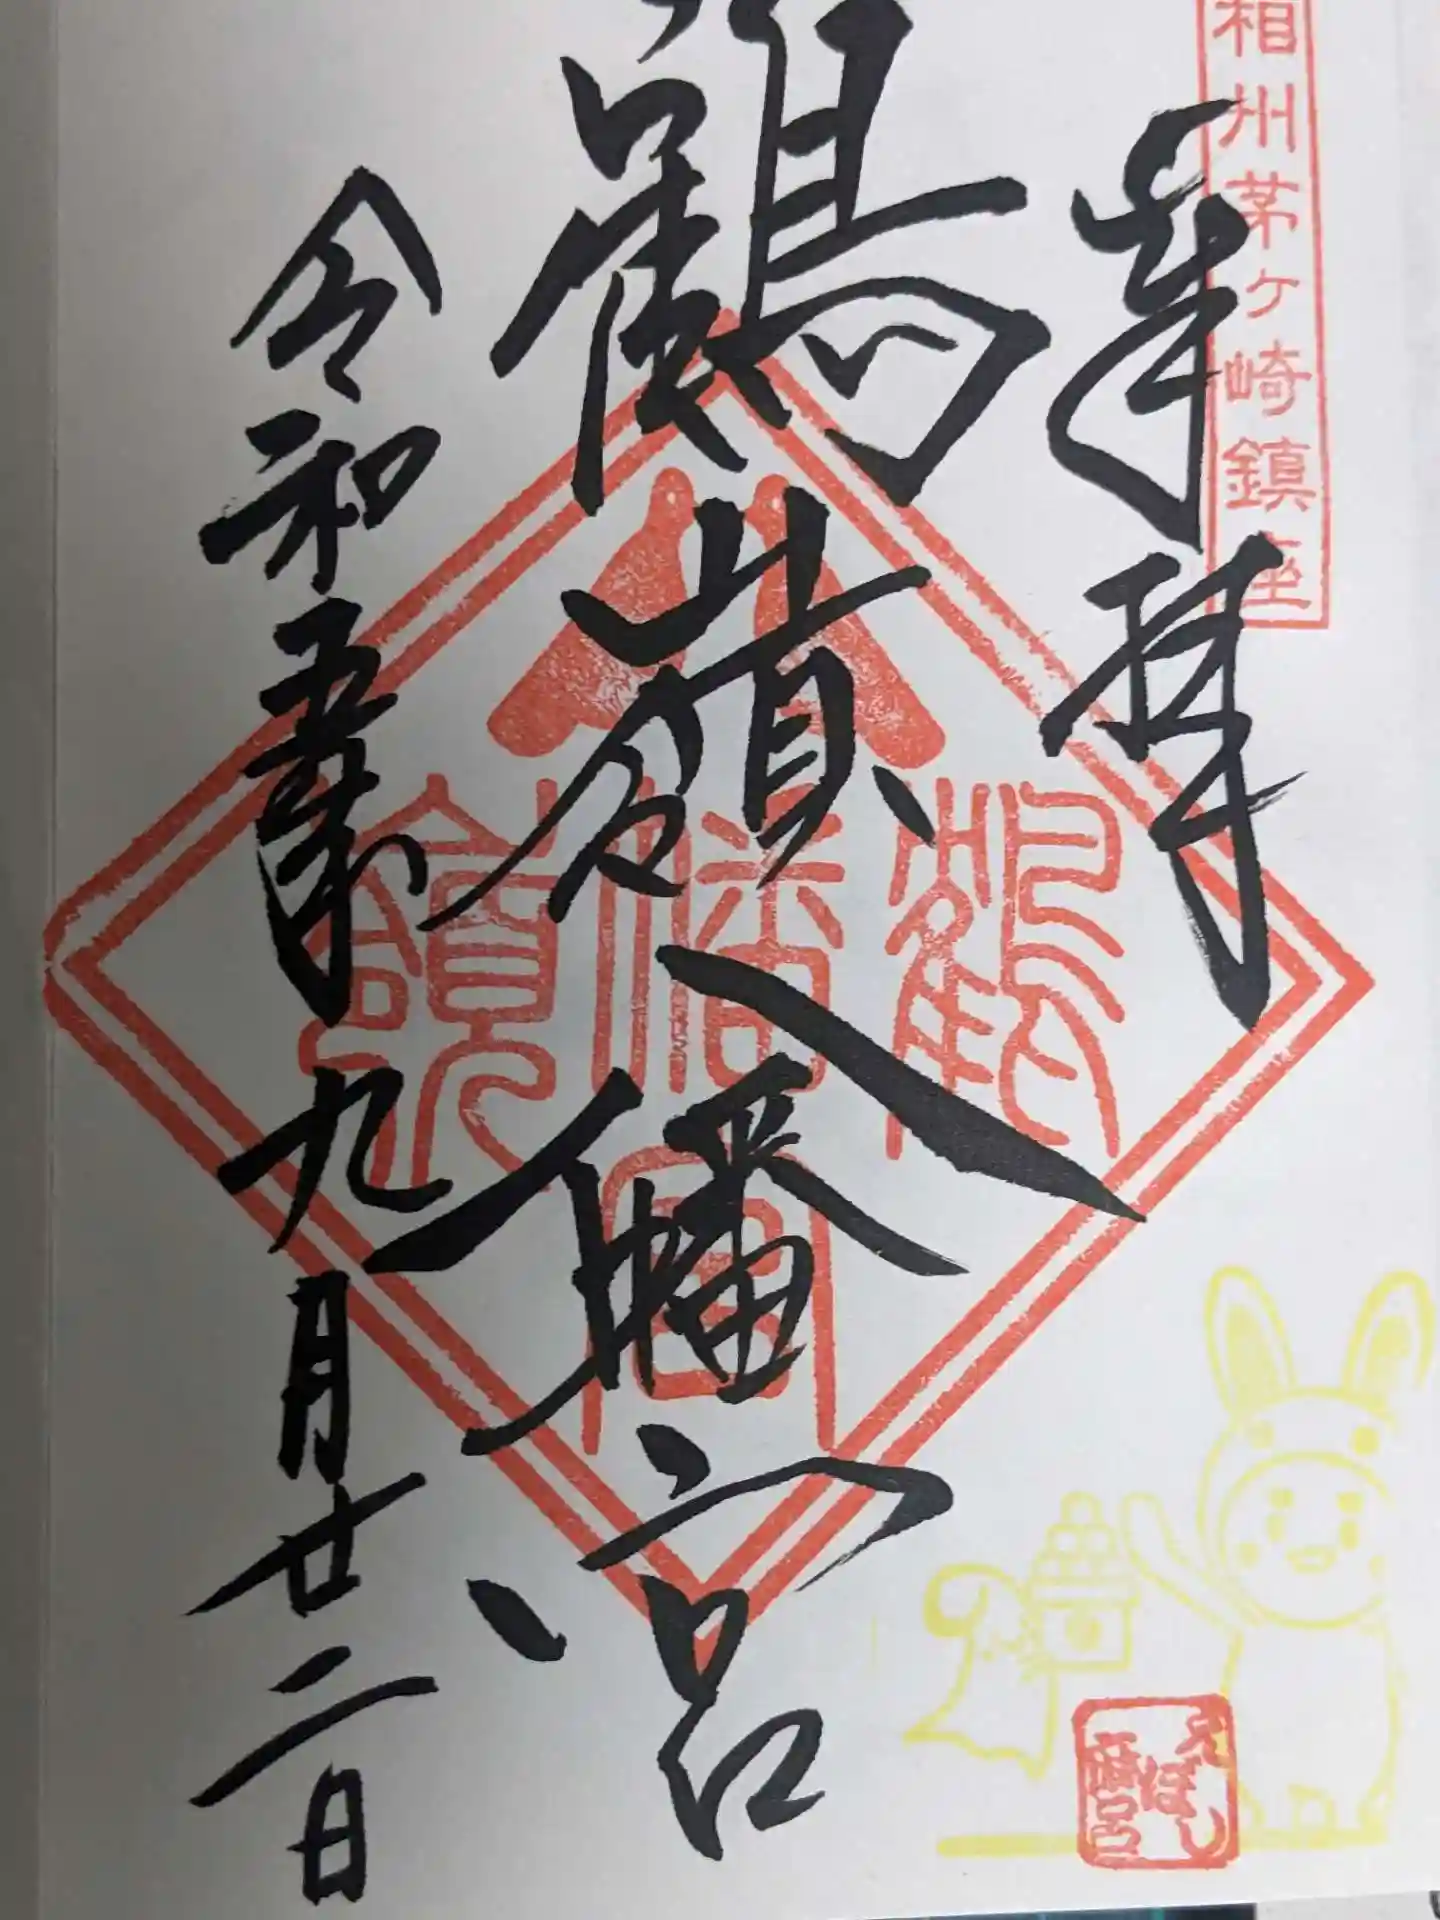 相州茅ヶ崎鎮座
奉拝
鶴嶺八幡宮
令和五年九月廿二日
鶴
幡宮
嶺
えぼし